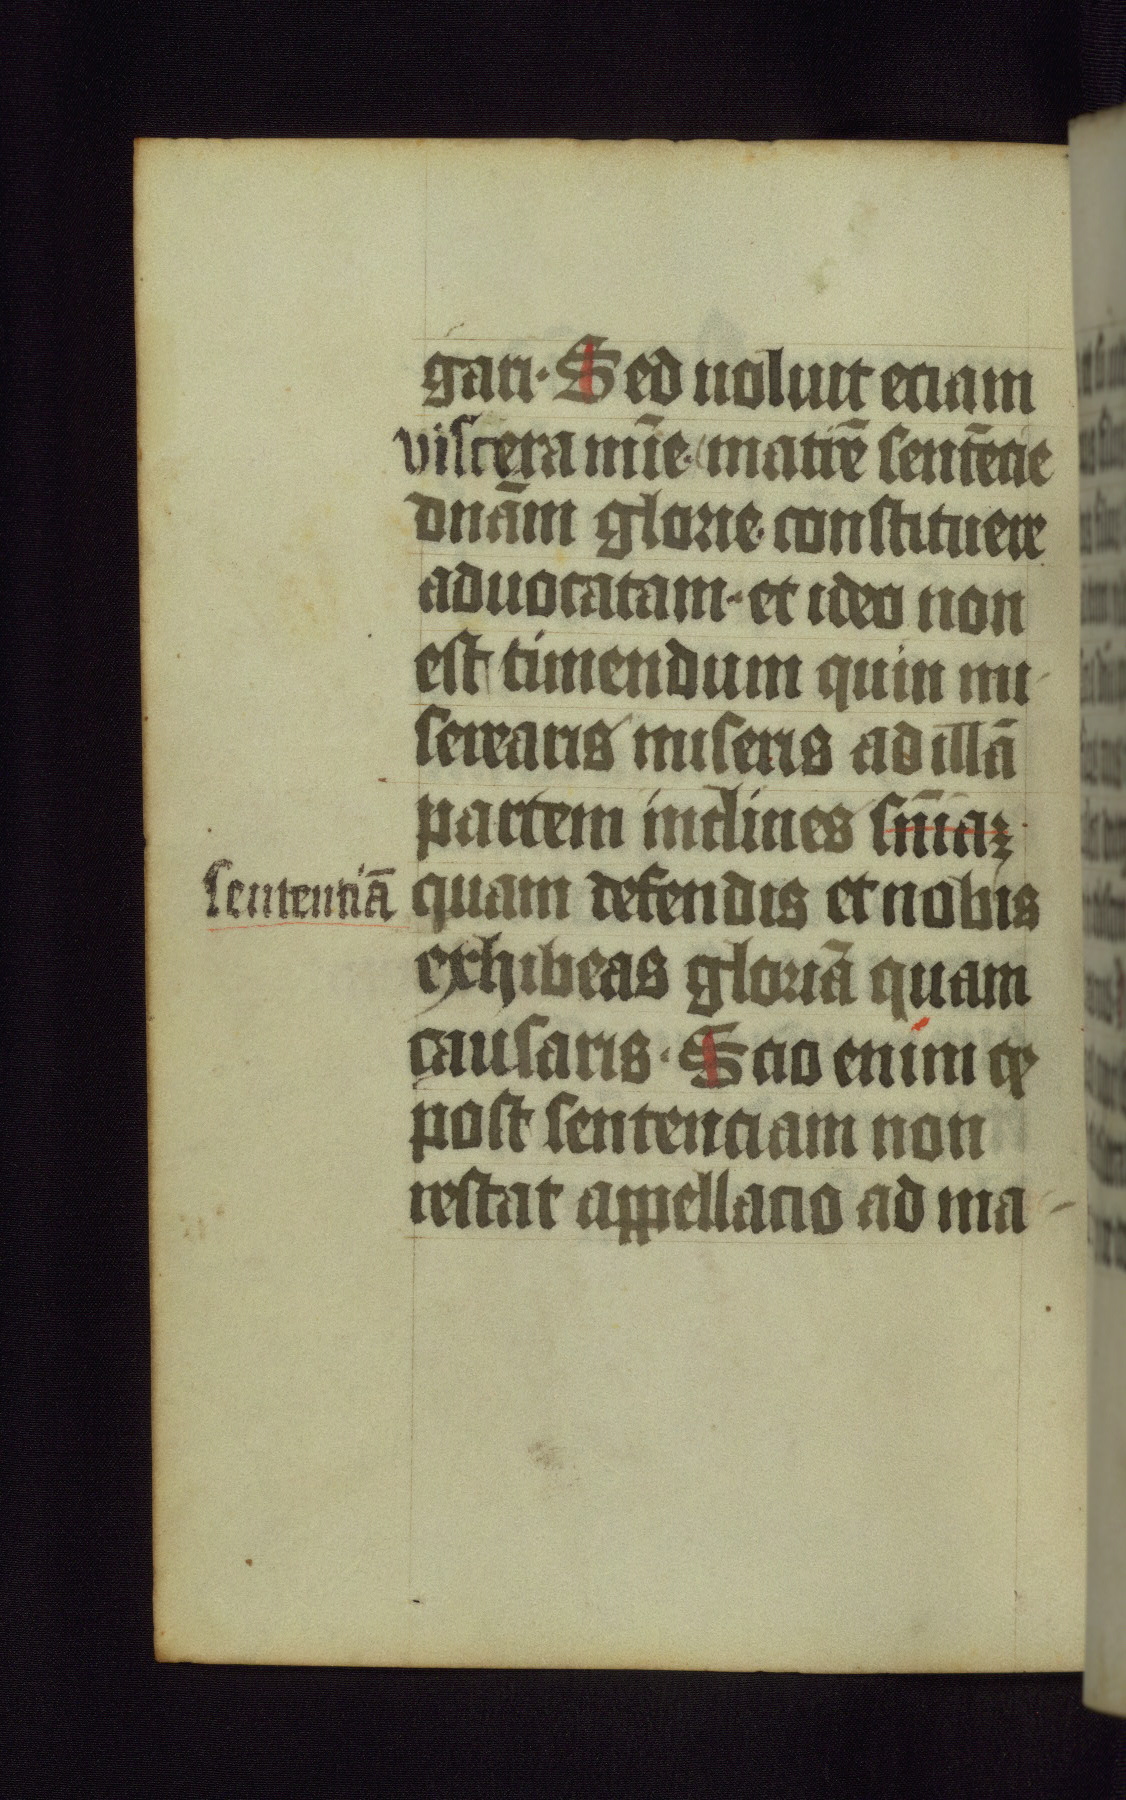 gari. Sed uoluit etiam
viscera mīe matrē sentēcie
dnām glorie constituere
aduocatam. et ideo non
est timendum quin mi
serearis miseris ad illā
partem inclines sn̄iaꝫ
sententiā quam defendis et nobis
exhibeas gloriā quam
causaris. Scio enim q̄
post sentenciam non
restat appellacio ad ma